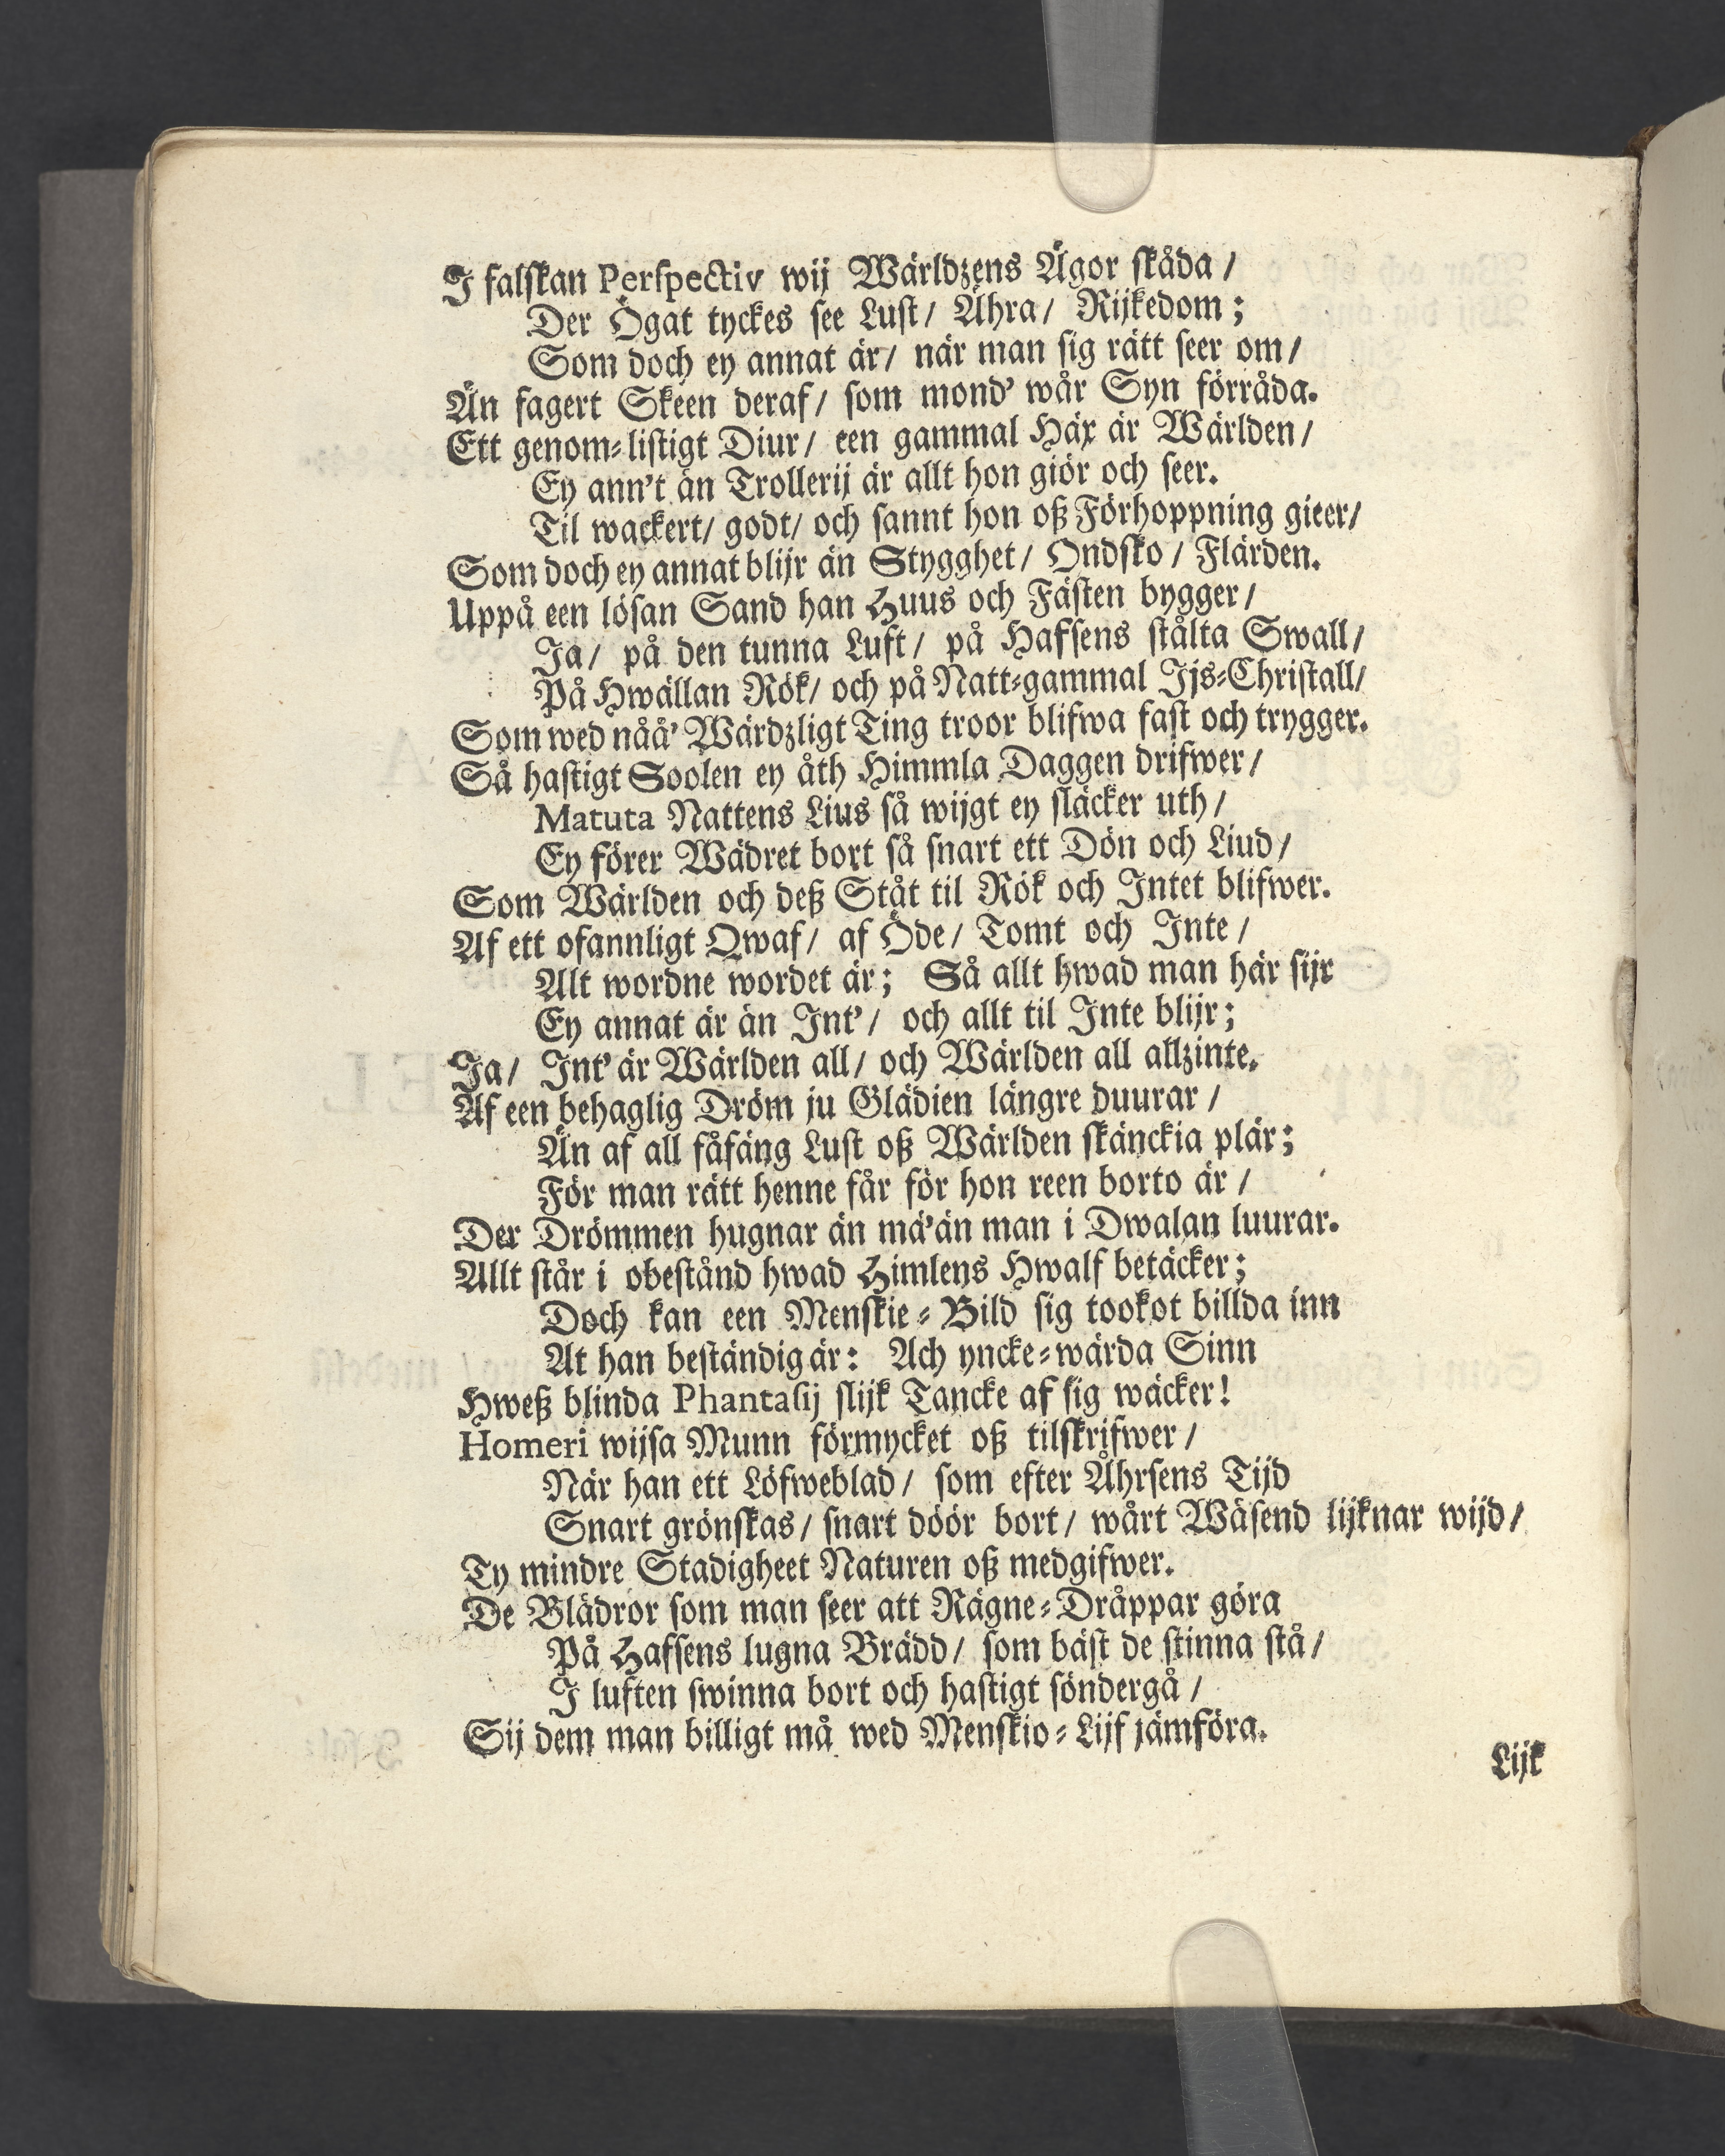 I falskan Perspectiv wij Wärldzens Ägor skåda /
Der Ögat tyckes see Lust / Ähra / Rijkedom ;
Som doch ey annat är / när man sig rätt seer om /
Än fagert Skeen deraf / som mond' wår Syn förråda.
Ett genom-listigt Diur / een gammal Häx är Wärlden /
Ey ann't än Trollerij är allt hon giör och seer.
Til wackert / godt / och sannt hon oß Förhoppning gieer /
Som doch ey annat blijr än Stygghet / Ondsko / Flärden.
Uppå een lösan Sand han Huus och Fästen bygger /
Ja / på den tunna Luft / på Hafsens stålta Swall /
På Hwällan Rök / och på Natt-gammal Ijs-Christall /
Som wed nåå' Wärdzligt Ting troor blifwa fast och trygger.
Så hastigt Soolen ey åth Himmla Daggen drifwer /
Matuta Nattens Lius så wijgt ey släcker uth /
Ey förer Wädret bort så snart ett Dön och Liud /
Som Wärlden och deß Ståt til Rök och Intet blifwer.
Af ett ofannligt Qwaf / af Öde / Tomt och Inte /
Alt wordne wordet är ; Så allt hwad man här sijr
Ey annat är än Int' / och allt til Inte blijr ;
Ja / Int' är Wärlden all / och Wärlden all allzinte.
Af een behaglig Dröm ju Glädien längre duurar /
Än af all fåfäng Lust oß Wärlden skänckia plär ;
För man rätt henne får för hon reen borto är /
Der Drömmen hugnar än mä'än man i Dwalan luurar.
Allt står i obestånd hwad Himlens Hwalf betäcker ;
Doch kan een Menskie-Bild sig tookot billda inn
At han beständig är : Ach yncke-wärda Sinn
Hweß blinda Phantasij slijk Tancke af sig wäcker !
Homeri wijsa Munn förmycket oß tilskrifwer /
När han ett Löfweblad / som efter Åhrsens Tijd
Snart grönskas / snart döör bort / wårt Wäsend lijknar wijd /
Ty mindre Stadigheet Naturen oß medgifwer.
De Blädror som man seer att Rägne-Dråppar göra
På Hafsens lugna Brädd / som bäst de stinna stå /
I luften swinna bort och hastigt söndergå /
Sij dem man billigt må wed Menskio-Lijf jämföra.
Lijk